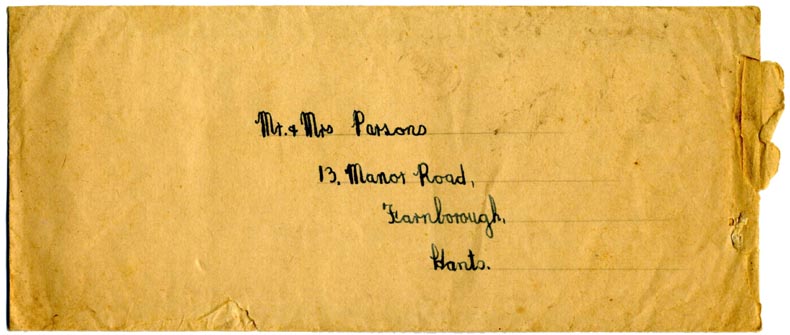 Mr. & Mrs Parsons
13, Manor Road,
Farnborough,
Hants.